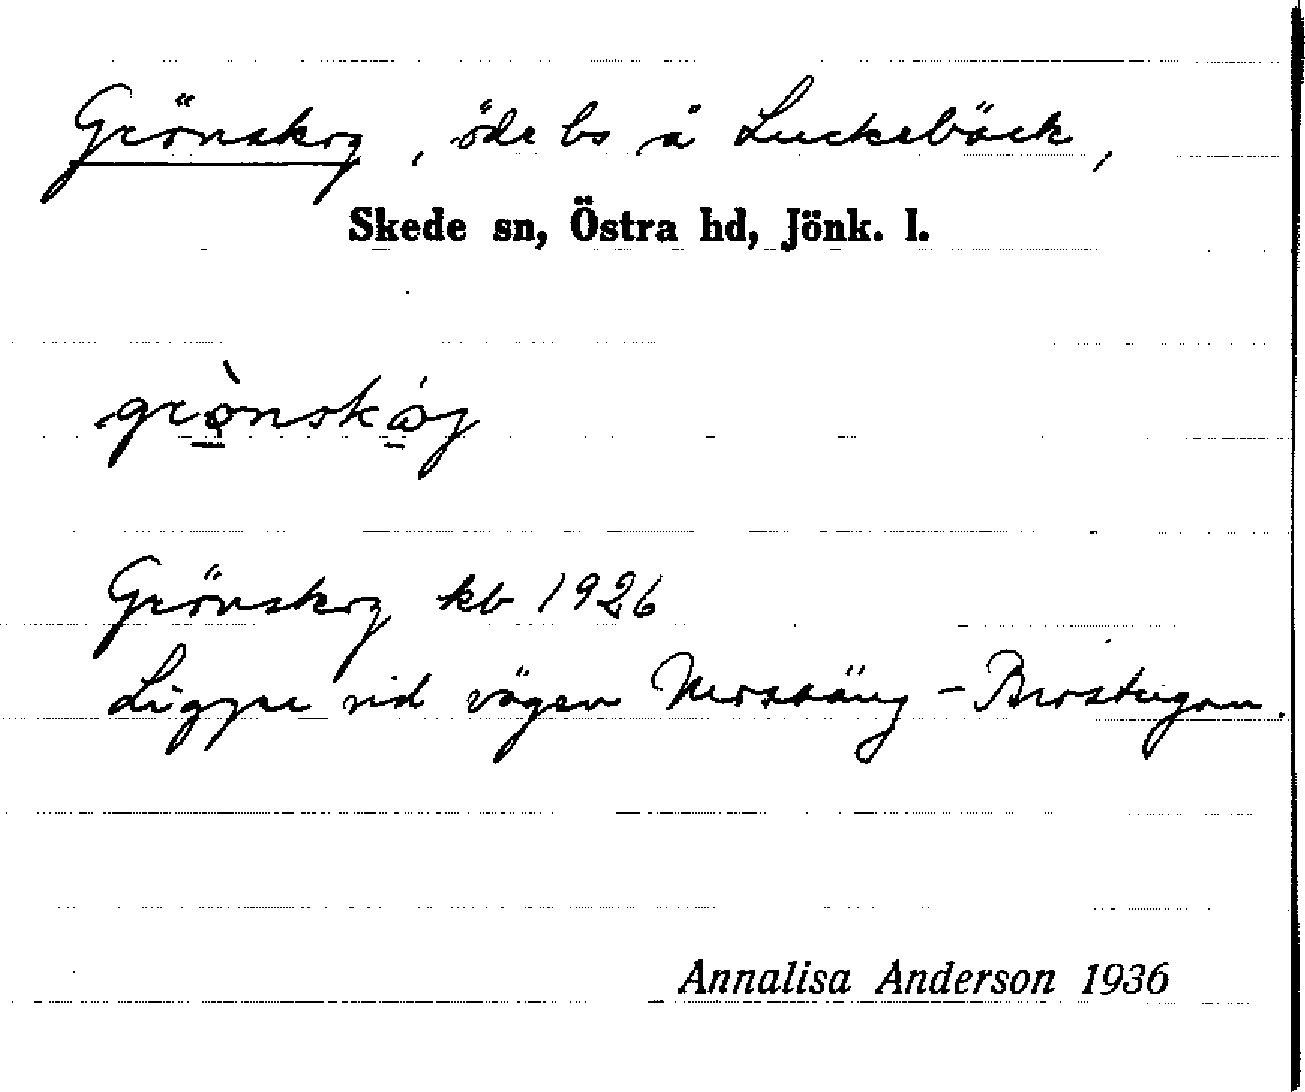 Grönskog, öde bs å Luckebäck,
Skede sn, Östra hd, Jönk. l.
grö̀nskóg
Grönskog kb 1926
Ligger vid vägen –
Annalisa Anderson 1936